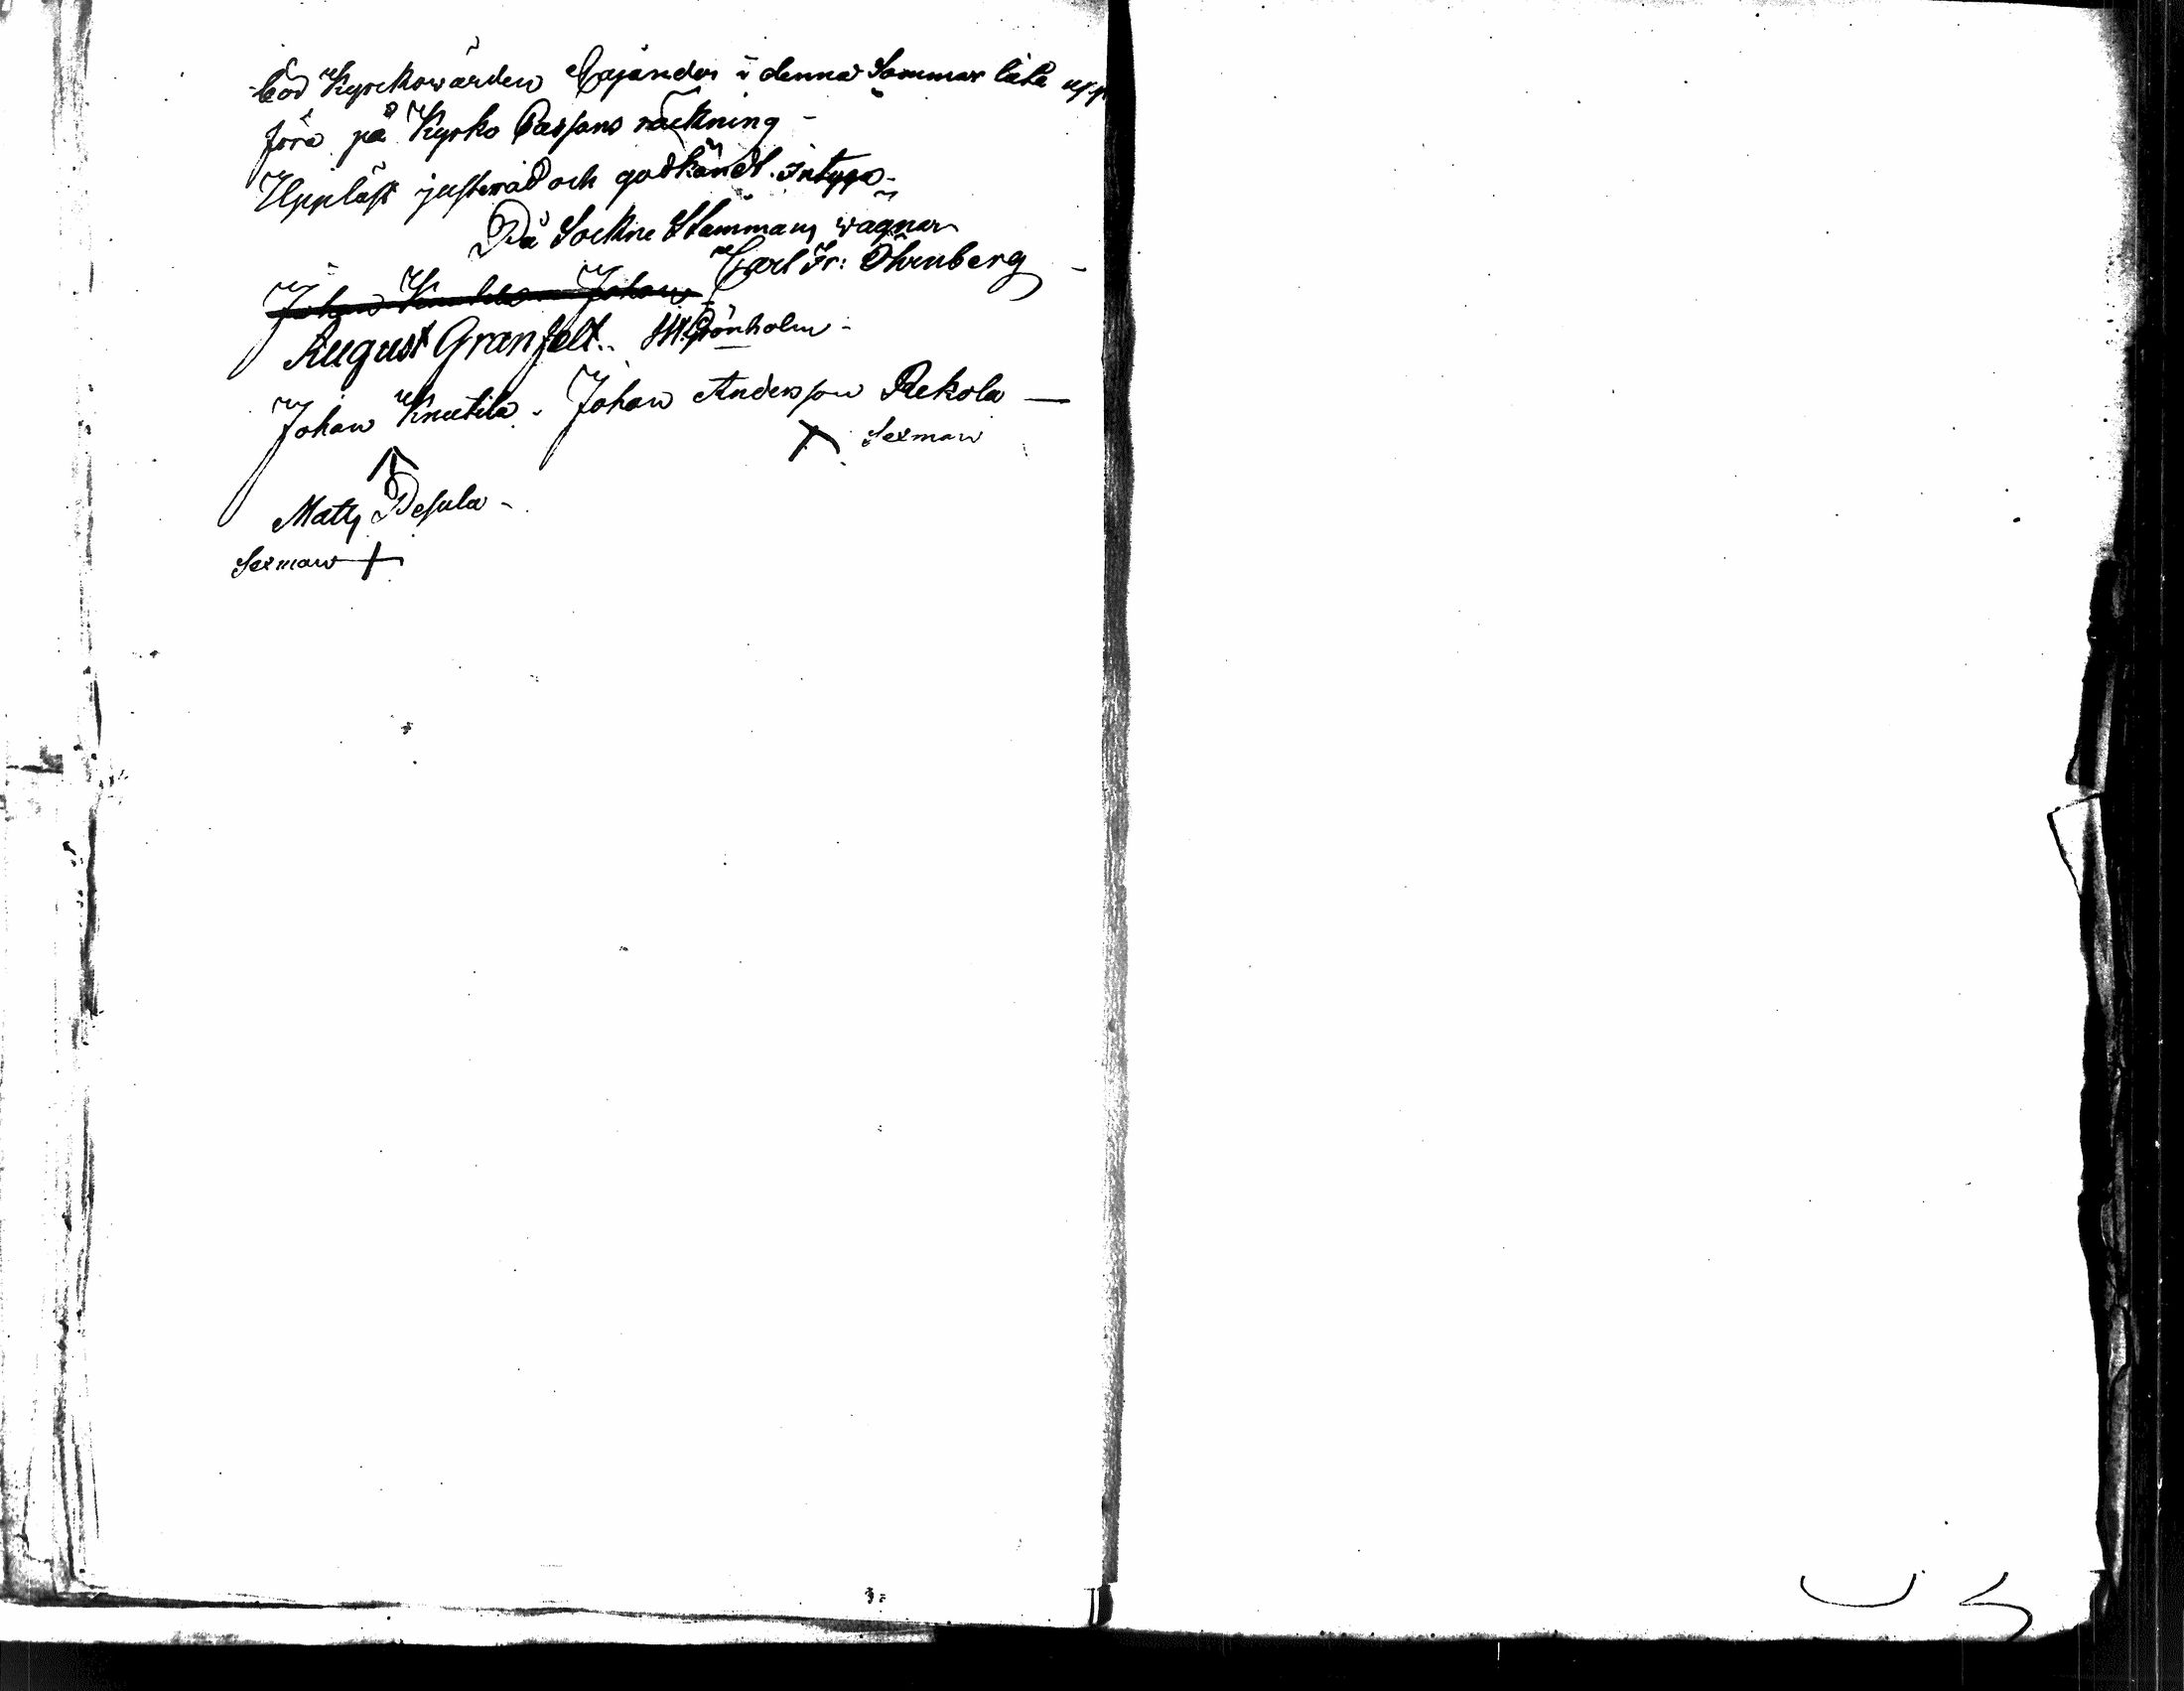 bod Kyrckowärden Cajander i denna Sommar låta upp
föra på Kyrko Cassans räckning -
Uppläst justerad och godkändt. intyga -
På Sockne Stämmans wägnar
Carl Fr: Öhrnberg -
Johan Knutila Johan
August Granfelt.. Grönholm -
Johan Knutila. Johan Andersson Rekola —
Sexman
Mats Pesula -
Sexman